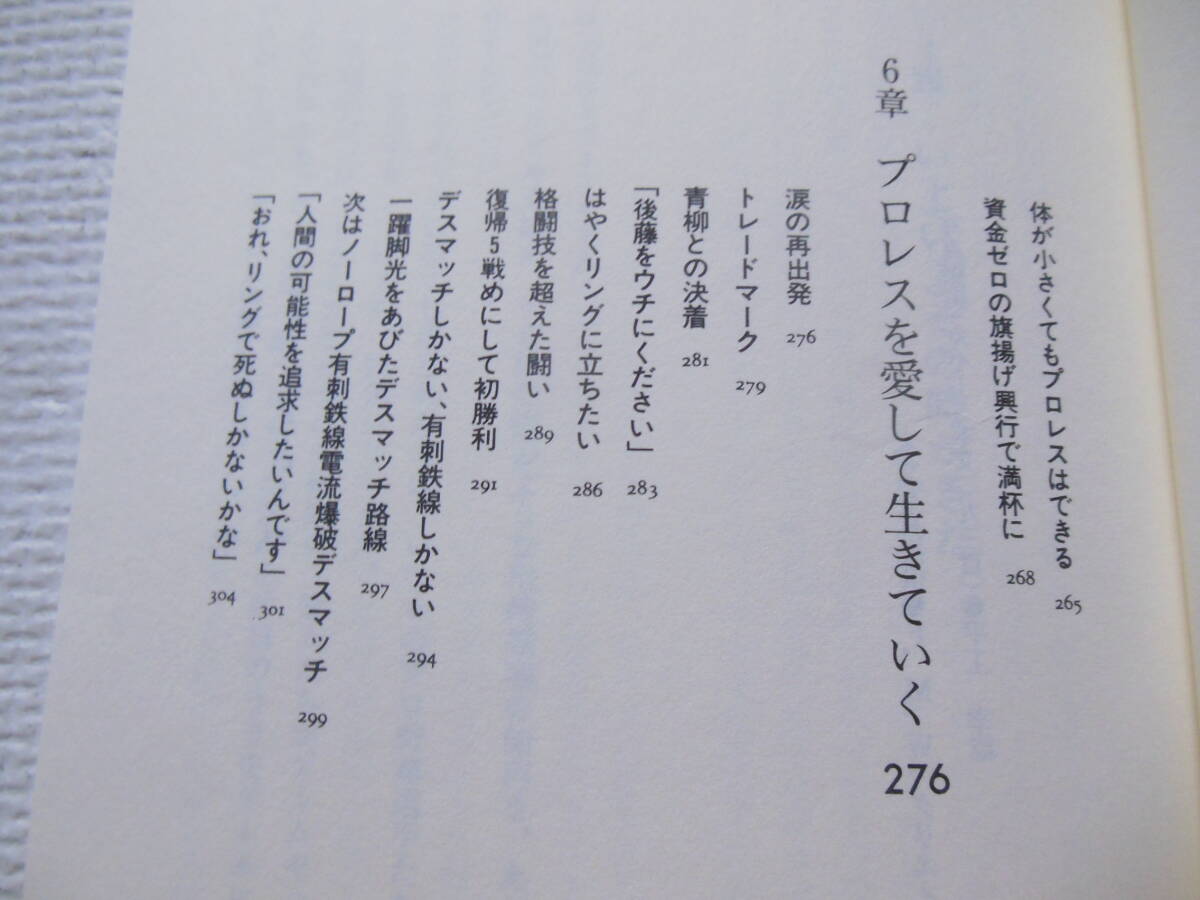 体が小さくてもプロレスはできる 265
資金ゼロの旗揚げ興行で満杯に 268
6章 プロレスを愛して生きていく 276
涙の再出発 276
トレードマーク 279
青柳との決着 281
「後藤をウチにください」 283
はやくリングに立ちたい 286
格闘技を超えた闘い 289
復帰5戦めにして初勝利 291
デスマッチしかない、有刺鉄線しかない 294
一躍脚光をあびたデスマッチ路線 297
次はノーロープ有刺鉄線電流爆破デスマッチ 299
「人間の可能性を追求したいんです」 301
「おれ、リングで死ぬしかないかな」 304